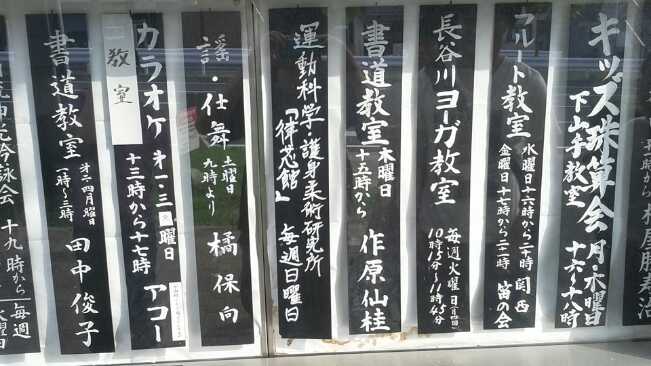 キッズ珠算会
下山手教室
月・木曜日
十六〜十八時
フルート教室
水曜日十六時から二十時
金曜日十七時から二二時
関西
笛の会
長谷川ヨーガ教室
毎週火曜日(月四回)
10時15分〜11時45分
書道教室
木曜日
十五時から
作原仙桂
運動科学・護身柔術研究所
「律芯館」
毎週日曜日
謡・仕舞
土曜日
九時より
橘保向
カラオケ教室
第一・三火曜日
十三時から十七時
アコー
書道教室
第二四月曜日
一時〜三時
田中俊子
吟詠会
十九時から
毎週